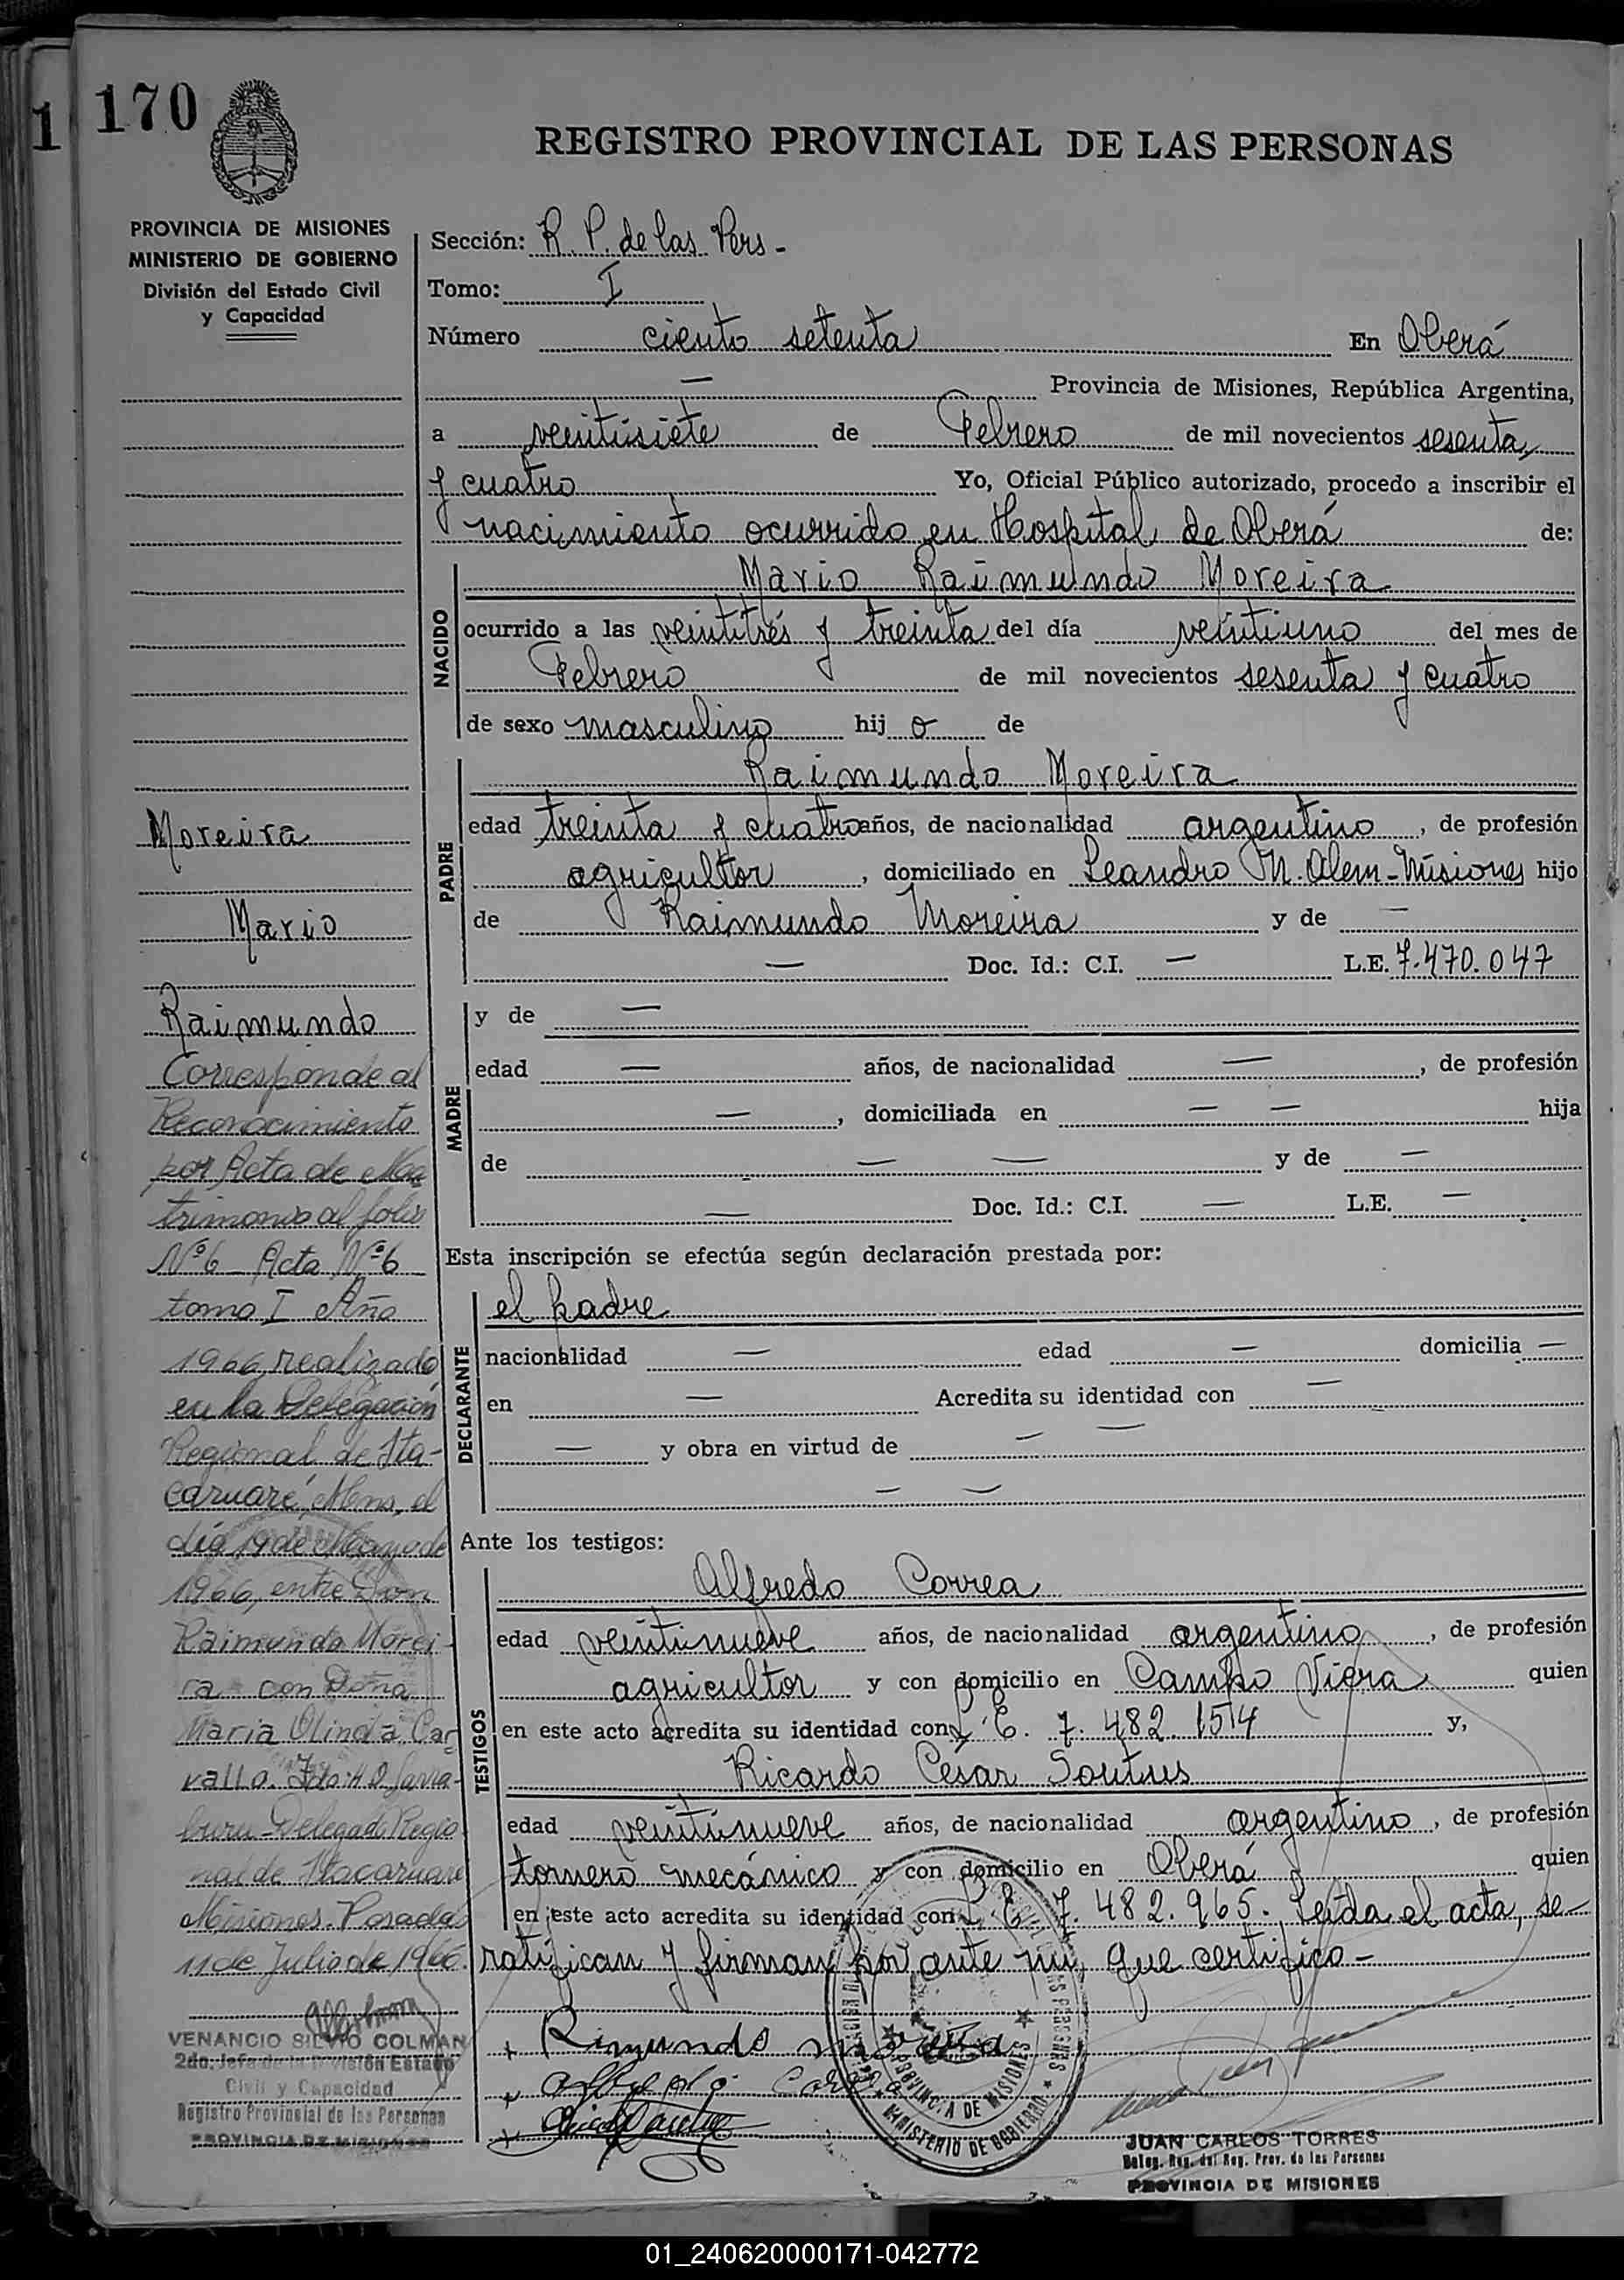 1
170
REGISTRO PROVINCIAL DE LAS PERSONAS
PROVINCIA DE MISIONES
MINISTERIO DE GOBIERNO
División del Estado Civil
y Capacidad
Sección: R. P. de las Pers -
Tomo: I
Número ciento setenta En Oberá
— Provincia de Misiones, República Argentina,
a veintisiete de Febrero de mil novecientos sesenta
y cuatro Yo, Oficial Público autorizado, procedo a inscribir el
nacimiento ocurrido en Hospital de Oberá de:
NACIDO
Mario Raimundo Moreira
ocurrido a las veintitrés y treinta del día veintiuno del mes de
Febrero de mil novecientos sesenta y cuatro
de sexo masculino hij o de
PADRE
Raimundo Moreira
edad treinta y cuatro años, de nacionalidad argentino, de profesión
agricultor, domiciliado en Leandro N. Alem - Misiones hijo
de Raimundo Moreira y de —
— Doc. Id.: C.I. — L.E. 7.470.047
MADRE
y de —
edad — años, de nacionalidad —, de profesión
—, domiciliada en — — hija
de — — y de —
— Doc. Id.: C.I. — L.E. —
Esta inscripción se efectúa según declaración prestada por:
DECLARANTE
el padre
nacionalidad — edad — domicilia —
en — Acredita su identidad con —
— y obra en virtud de — —
— —
Ante los testigos:
TESTIGOS
Alfredo Correa
edad veintinueve años, de nacionalidad argentino, de profesión
agricultor y con domicilio en Campo Viera quien
en este acto acredita su identidad con L. E. 7. 482. 154 y,
Ricardo César
edad veintinueve años, de nacionalidad argentino, de profesión
tornero mecánico y con domicilio en Oberá quien
en este acto acredita su identidad con L. E. 7. 482. 965. Leída el acta, se
ratifican y firman por ante mí, que certifico -
Moreira
Mario
Raimundo
Corresponde al
Reconocimiento
por Acta de Ma
trimonio al folio
Nº 6 - Acta Nº 6
tomo I Año
1966, realizado
en la Delegación
Regional de Ita-
caruaré, Mnes, el
día 19 de Mayo de
1966, entre Don
Raimundo Morei-
ra con Doña
Maria Olinda Car
vallo. Fdo: H. O.
Delegado Regio
nal de Itacaruare
Misiones. Posadas
11 de Julio de 1966.
VENANCIO SILVIO COLMAN
2do. Jefe de la División Estado
Civil y Capacidad
Registro Provincial de las Personas
PROVINCIA DE MISIONES
Rimundo
PROVINCIA DE MISIONES
MINISTERIO DE GOBIERNO
JUAN CARLOS TORRES
Deleg. Reg. del Reg. Prov. de las Personas
PROVINCIA DE MISIONES
01_240620000171-042772